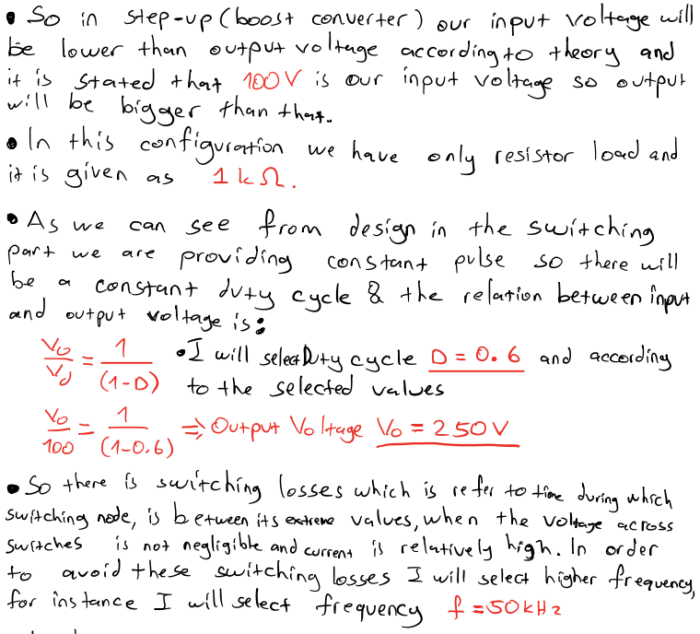 • So in step-up (boost converter) our input voltage will
be lower than output voltage according to theory and
it is stated that 100V is our input voltage so output
will be bigger than that.
• In this configuration we have only resistor load and
it is given as 1kΩ.
• As we can see from design in the switching
part we are providing constant pulse so there will
be a constant duty cycle & the relation between input
and output voltage is:
Vo/Vd = 1/(1-D) • I will select Duty cycle D = 0.6 and according
to the selected values
Vo/100 = 1/(1-0.6) => Output Voltage Vo = 250V
• So there is switching losses which is refer to time during which
switching node, is between its extreme values, when the voltage across
switches is not negligible and current is relatively high. In order
to avoid these switching losses I will select higher frequency,
for instance I will select frequency f = 50kHz